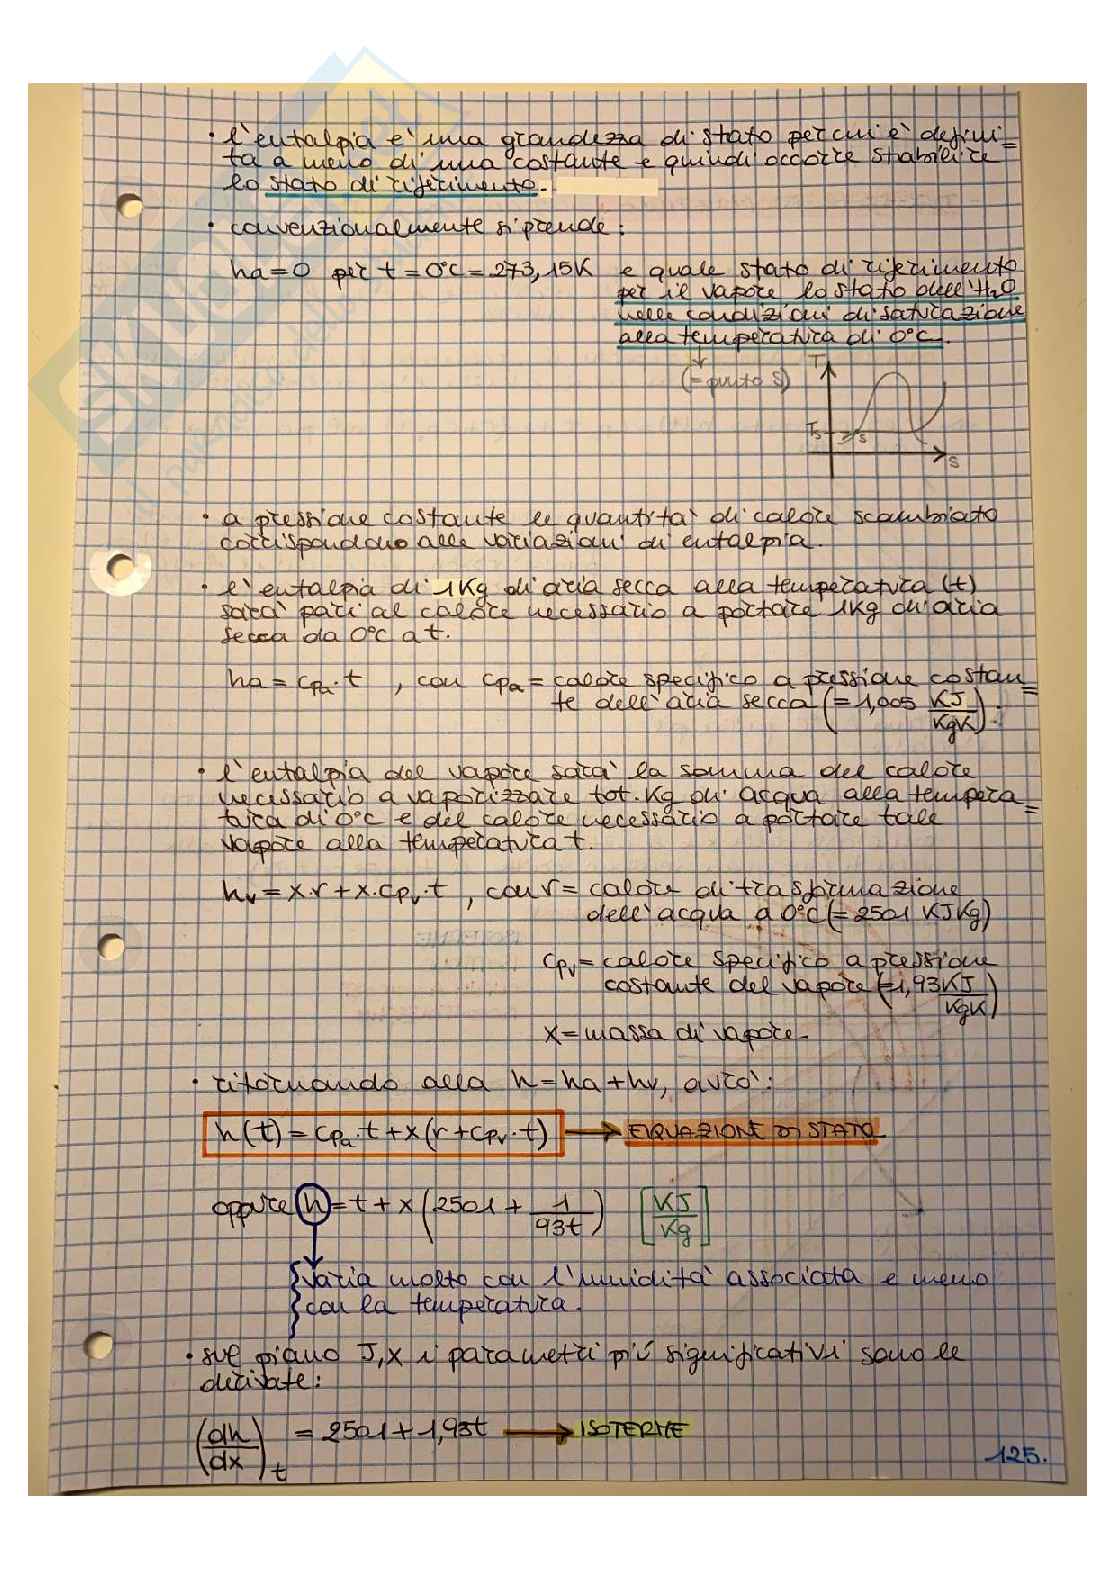 • l'entalpia è una grandezza di stato per cui è defini=
ta a meno di una costante e quindi occorre stabilire
lo stato di riferimento.
• convenzionalmente si prende:
ha=0 per t=0°C=273,15K e quale stato di riferimento
per il vapore lo stato dell'H2O
nelle condizioni di saturazione
alla temperatura di 0°C.
(=punto S)
T
Ts
s
S
• a pressione costante le quantità di calore scambiato
corrispondono alle variazioni di entalpia.
• l'entalpia di 1Kg di aria secca alla temperatura (t)
sarà pari al calore necessario a portare 1Kg di aria
secca da 0°C a t.
ha = cpa·t , con cpa = calore specifico a pressione costan=
te dell'aria secca (=1,005 KJ/KgK).
• l'entalpia del vapore sarà la somma del calore
necessario a vaporizzare tot. Kg di acqua alla tempera=
tura di 0°C e del calore necessario a portare tale
vapore alla temperatura t.
hv = x·r + x·cpv·t , con r = calore di trasformazione
dell'acqua a 0°C (=2501 KJKg)
cpv = calore specifico a pressione
costante del vapore (=1,93 KJ/KgK)
x = massa di vapore.
• ritornando alla h=ha+hv, avrò:
h(t) = cpa·t + x(r+cpv·t) → EQUAZIONE DI STATO
oppure h = t + x(2501 + 1/93t) [KJ/Kg]
varia molto con l'umidità associata e meno
con la temperatura.
• sul piano J,x i parametri più significativi sono le
derivate:
(dh/dx)t = 2501 + 1,93t → ISOTERME
125.